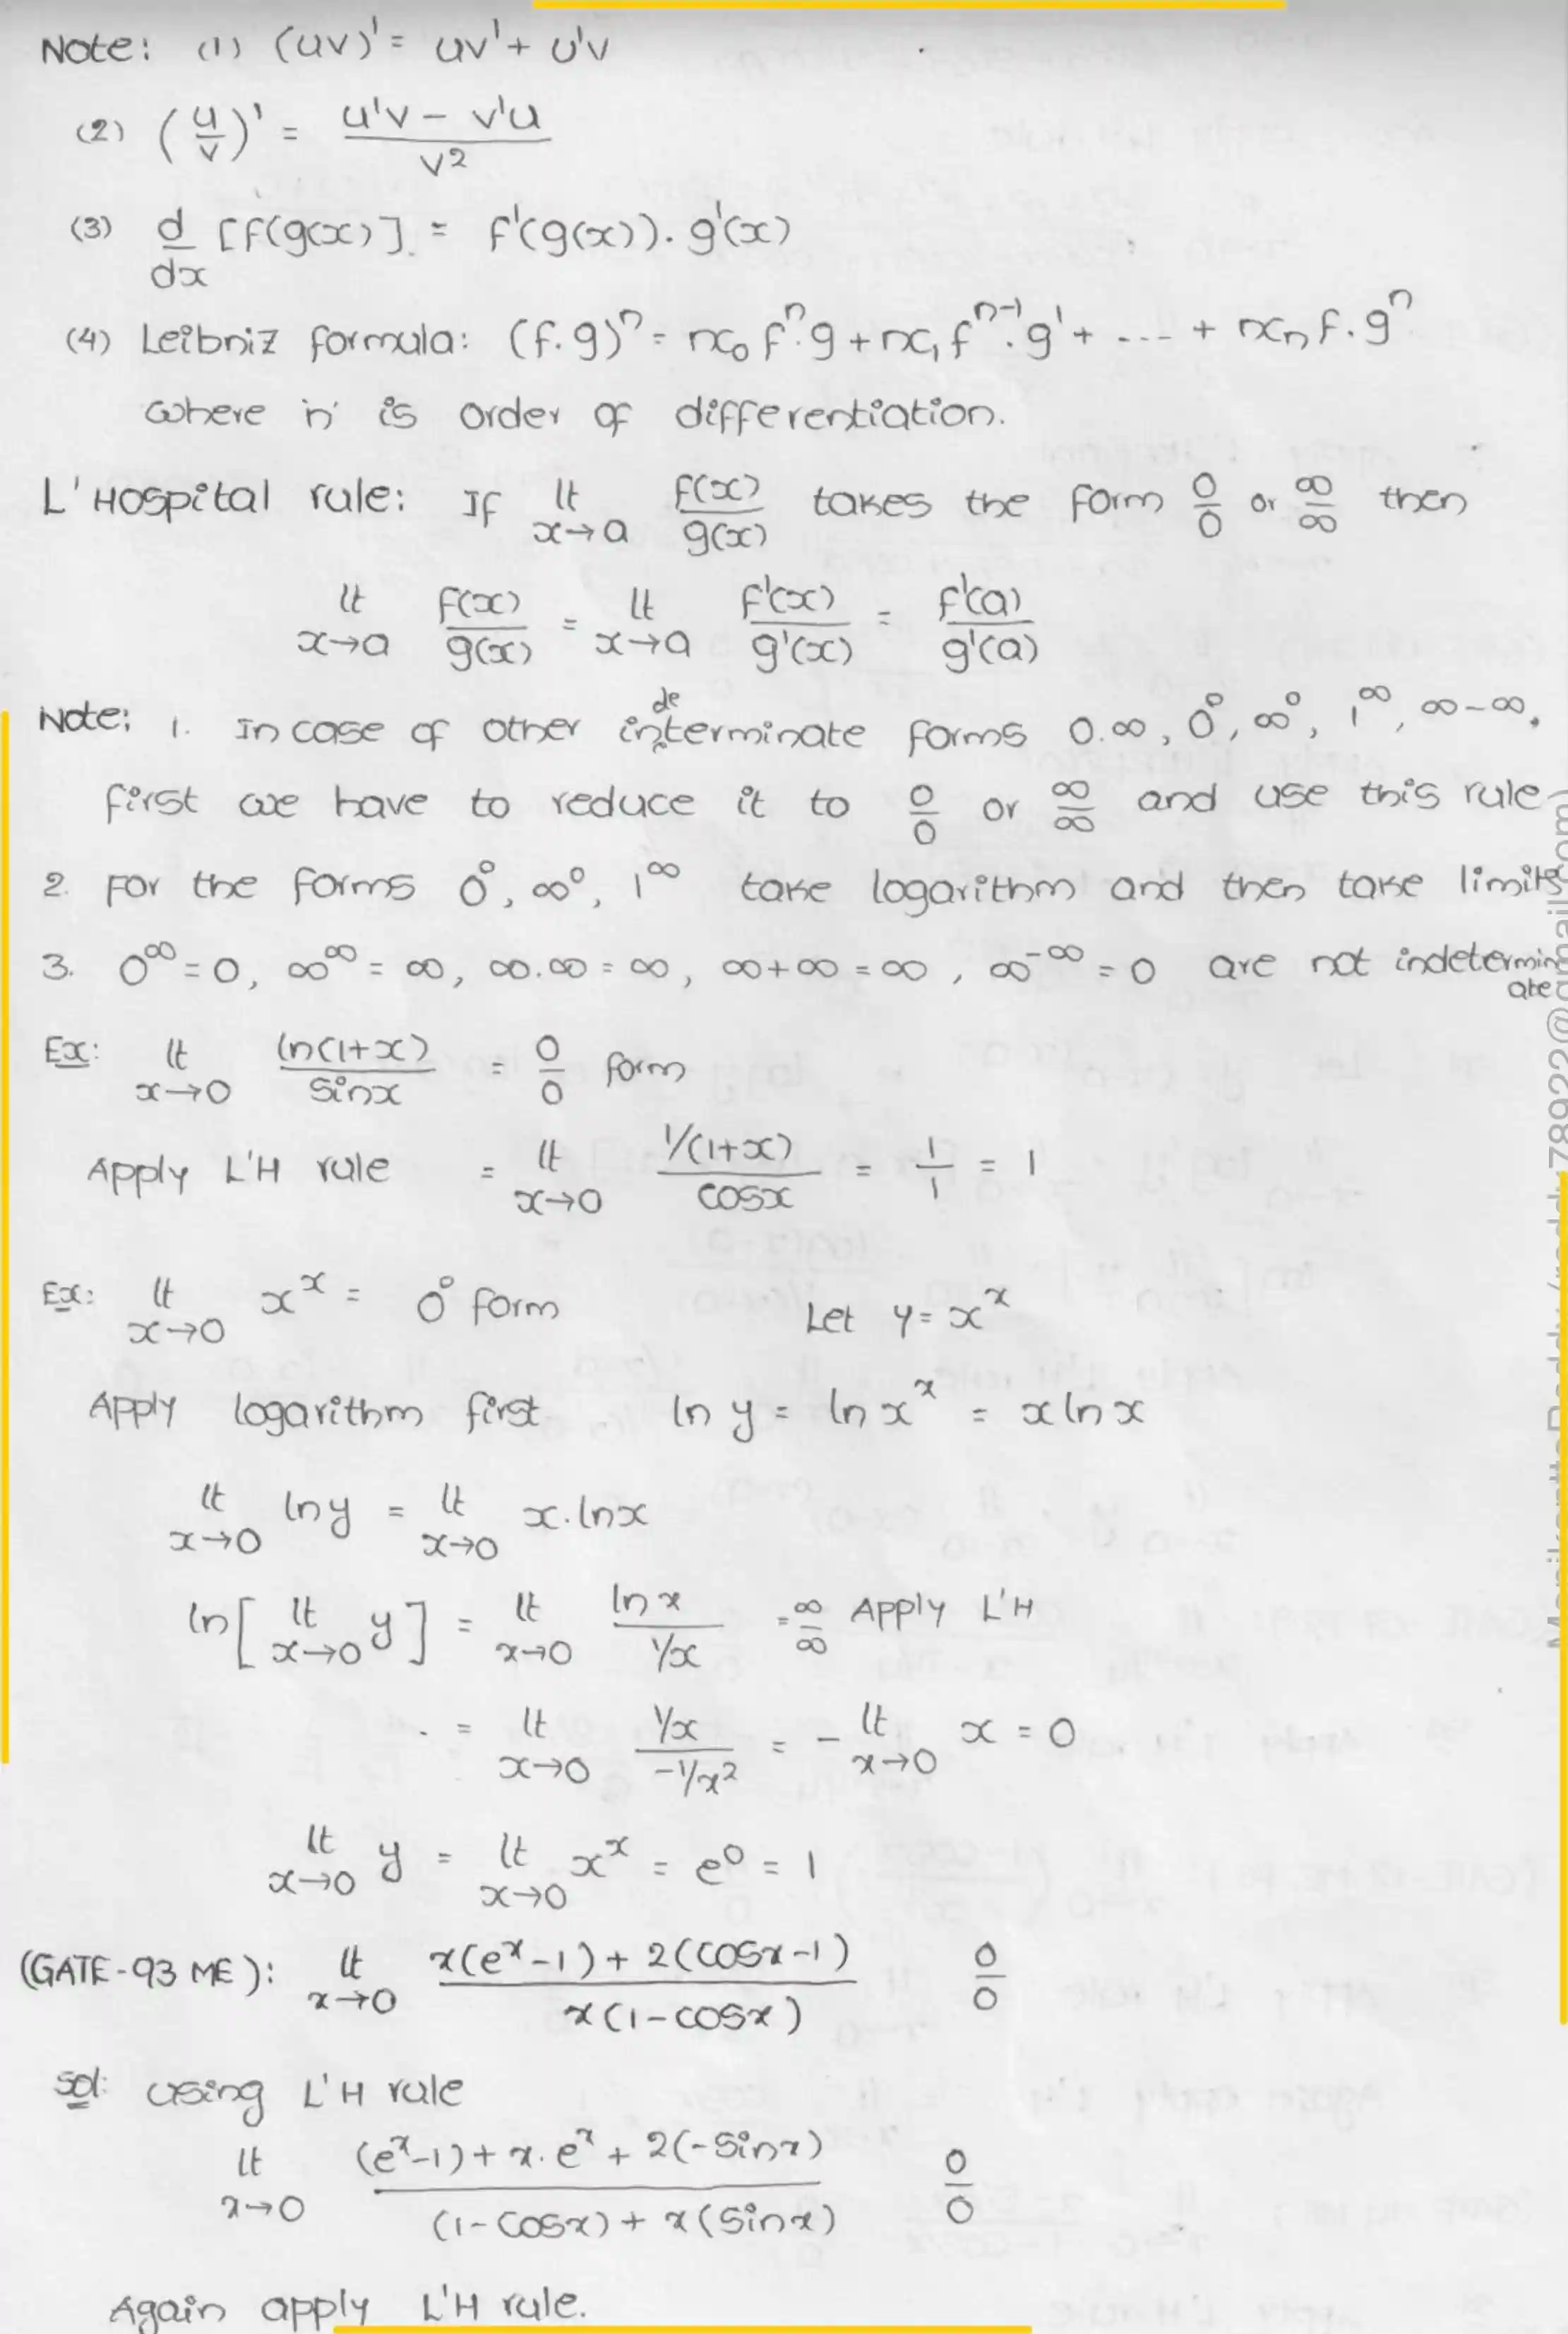 Note: (1) (uv)' = uv' + u'v
(2) (u/v)' = (u'v - v'u)/v²
(3) d/dx [f(g(x)]. = f'(g(x)). g'(x)
(4) Leibniz formula: (f.g)ⁿ = nc₀ fⁿ.g + nc₁ fⁿ⁻¹.g' + ---- + ncₙ f.gⁿ
where 'n' is order of differentiation.
L'Hospital rule: If lt x→a f(x)/g(x) takes the form 0/0 or ∞/∞ then
lt x→a f(x)/g(x) = lt x→a f'(x)/g'(x) = f'(a)/g'(a)
Note: 1. In case of other indeterminate forms 0.∞, 0⁰, ∞⁰, 1^∞, ∞-∞,
first we have to reduce it to 0/0 or ∞/∞ and use this rule
2. For the forms 0⁰, ∞⁰, 1^∞ take logarithm and then take limits
3. 0^∞ = 0, ∞^∞ = ∞, ∞.∞ = ∞, ∞+∞ = ∞, ∞^-∞ = 0 are not indeterminate
Ex: lt x→0 ln(1+x)/sinx = 0/0 form
Apply L'H rule = lt x→0 1/(1+x)/cosx = 1/1 = 1
Ex: lt x→0 x^x = 0⁰ form Let y = x^x
Apply logarithm first ln y = ln x^x = x ln x
lt x→0 ln y = lt x→0 x.lnx
ln[lt x→0 y] = lt x→0 ln x/(1/x) = ∞/∞ Apply L'H
= lt x→0 (1/x)/(-1/x²) = - lt x→0 x = 0
lt x→0 y = lt x→0 x^x = e⁰ = 1
(GATE-93 ME): lt x→0 (x(e^x-1) + 2(cosx-1))/(x(1-cosx)) 0/0
Sol: using L'H rule
lt x→0 ((e^x-1) + x.e^x + 2(-sinx))/((1-cosx) + x(sinx)) 0/0
Again apply L'H rule.
78922@gmail.com)